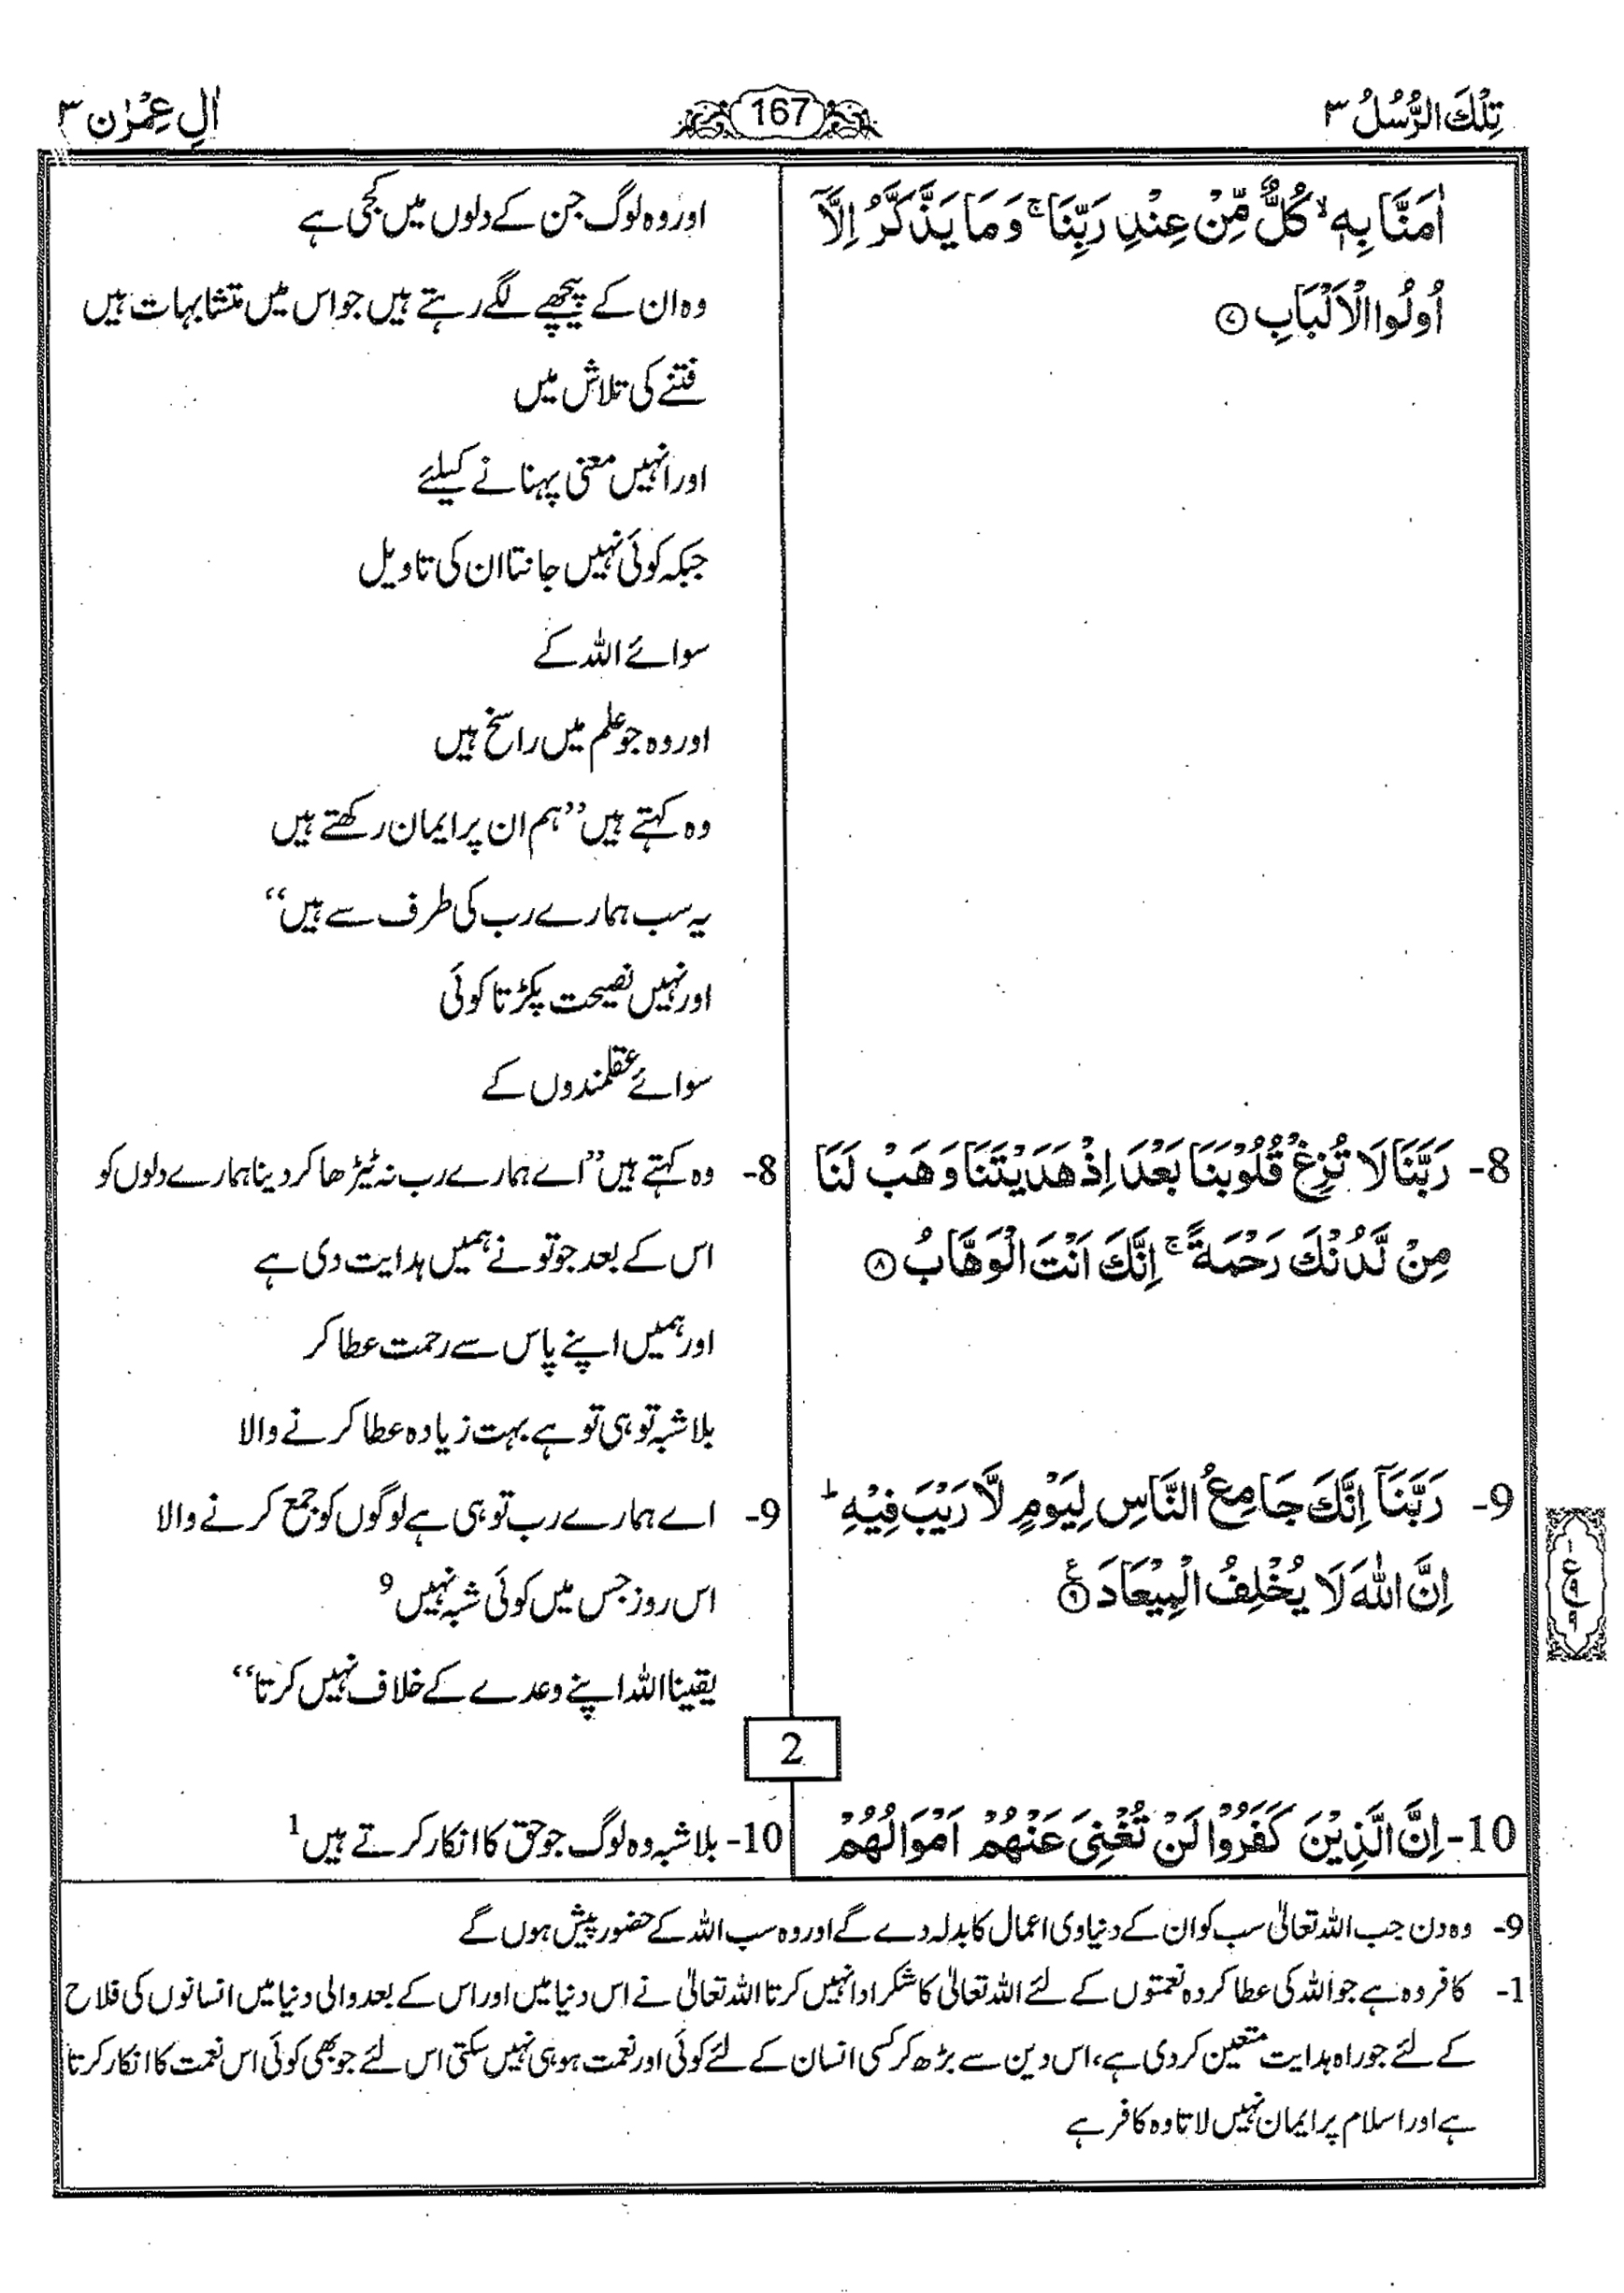 تِلْكَ الرُّسُلُ ٣
167
اٰلِ عِمْرٰن ٣
اٰمَنَّا بِهٖ ۙ كُلٌّ مِّنْ عِنْدِ رَبِّنَا ۚ وَمَا يَذَّكَّرُ اِلَّآ
اُولُوا الْاَلْبَابِ ۝٧
8- رَبَّنَا لَا تُزِغْ قُلُوْبَنَا بَعْدَ اِذْ هَدَيْتَنَا وَهَبْ لَنَا
مِنْ لَّدُنْكَ رَحْمَةً ۚ اِنَّكَ اَنْتَ الْوَهَّابُ ۝٨
9- رَبَّنَآ اِنَّكَ جَامِعُ النَّاسِ لِيَوْمٍ لَّا رَيْبَ فِيْهِ ؕ
اِنَّ اللّٰهَ لَا يُخْلِفُ الْمِيْعَادَ ۝٩ ع
اور وہ لوگ جن کے دلوں میں کجی ہے
وہ ان کے پیچھے لگے رہتے ہیں جو اس میں متشابہات ہیں
فتنے کی تلاش میں
اور انہیں معنی پہنانے کیلئے
جبکہ کوئی نہیں جانتا ان کی تاویل
سوائے اللہ کے
اور وہ جو علم میں راسخ ہیں
وہ کہتے ہیں ”ہم ان پر ایمان رکھتے ہیں
یہ سب ہمارے رب کی طرف سے ہیں“
اور نہیں نصیحت پکڑتا کوئی
سوائے عقلمندوں کے
8- وہ کہتے ہیں ”اے ہمارے رب نہ ٹیڑھا کر دینا ہمارے دلوں کو
اس کے بعد جو تو نے ہمیں ہدایت دی ہے
اور ہمیں اپنے پاس سے رحمت عطا کر
بلاشبہ تو ہی تو ہے بہت زیادہ عطا کرنے والا
9- اے ہمارے رب تو ہی ہے لوگوں کو جمع کرنے والا
اس روز جس میں کوئی شبہ نہیں 9
یقینا اللہ اپنے وعدے کے خلاف نہیں کرتا“
2
10- اِنَّ الَّذِيْنَ كَفَرُوْا لَنْ تُغْنِىَ عَنْهُمْ اَمْوَالُهُمْ
10- بلاشبہ وہ لوگ جو حق کا انکار کرتے ہیں 1
9- وہ دن جب اللہ تعالیٰ سب کو ان کے دنیاوی اعمال کا بدلہ دے گا اور وہ سب اللہ کے حضور پیش ہوں گے
1- کافر وہ ہے جو اللہ کی عطا کردہ نعمتوں کے لئے اللہ تعالیٰ کا شکر ادا نہیں کرتا اللہ تعالیٰ نے اس دنیا میں اور اس کے بعد والی دنیا میں انسانوں کی فلاح
کے لئے جو راہ ہدایت متعین کر دی ہے، اس دین سے بڑھ کر کسی انسان کے لئے کوئی اور نعمت ہو ہی نہیں سکتی اس لئے جو بھی کوئی اس نعمت کا انکار کرتا
ہے اور اسلام پر ایمان نہیں لاتا وہ کافر ہے